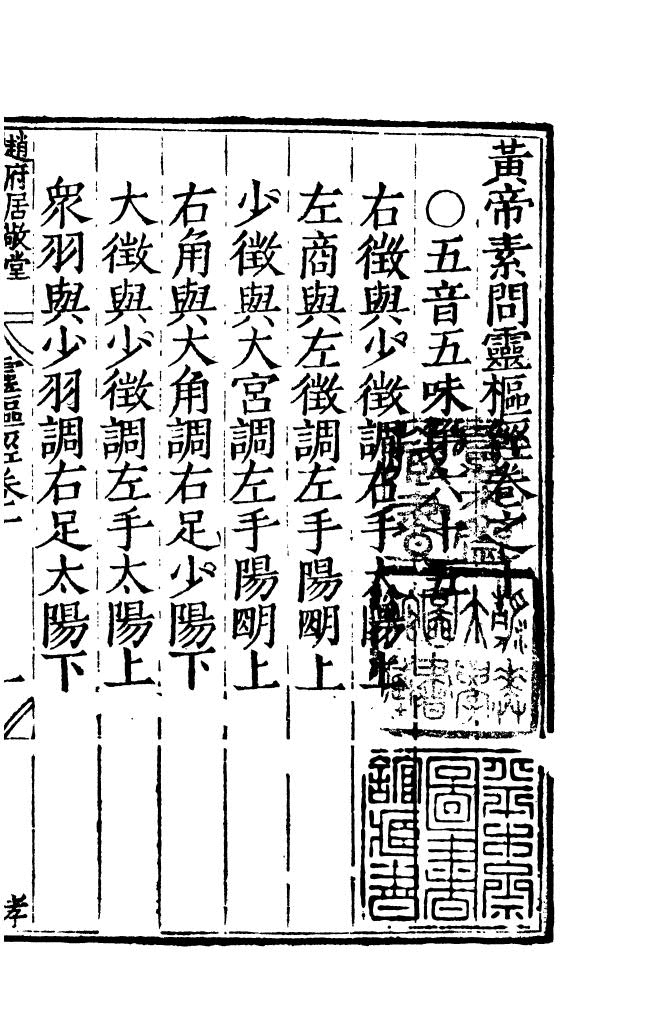 黃帝素問靈樞經卷之十
○五音五味第六十五
右徵與少徵調右手太陽上
左商與左徵調左手陽明上
少徵與大宮調左手陽明上
右角與大角調右足少陽下
大徵與少徵調左手太陽上
眾羽與少羽調右足太陽下
趙府居敬堂
靈樞經卷十
一
孝